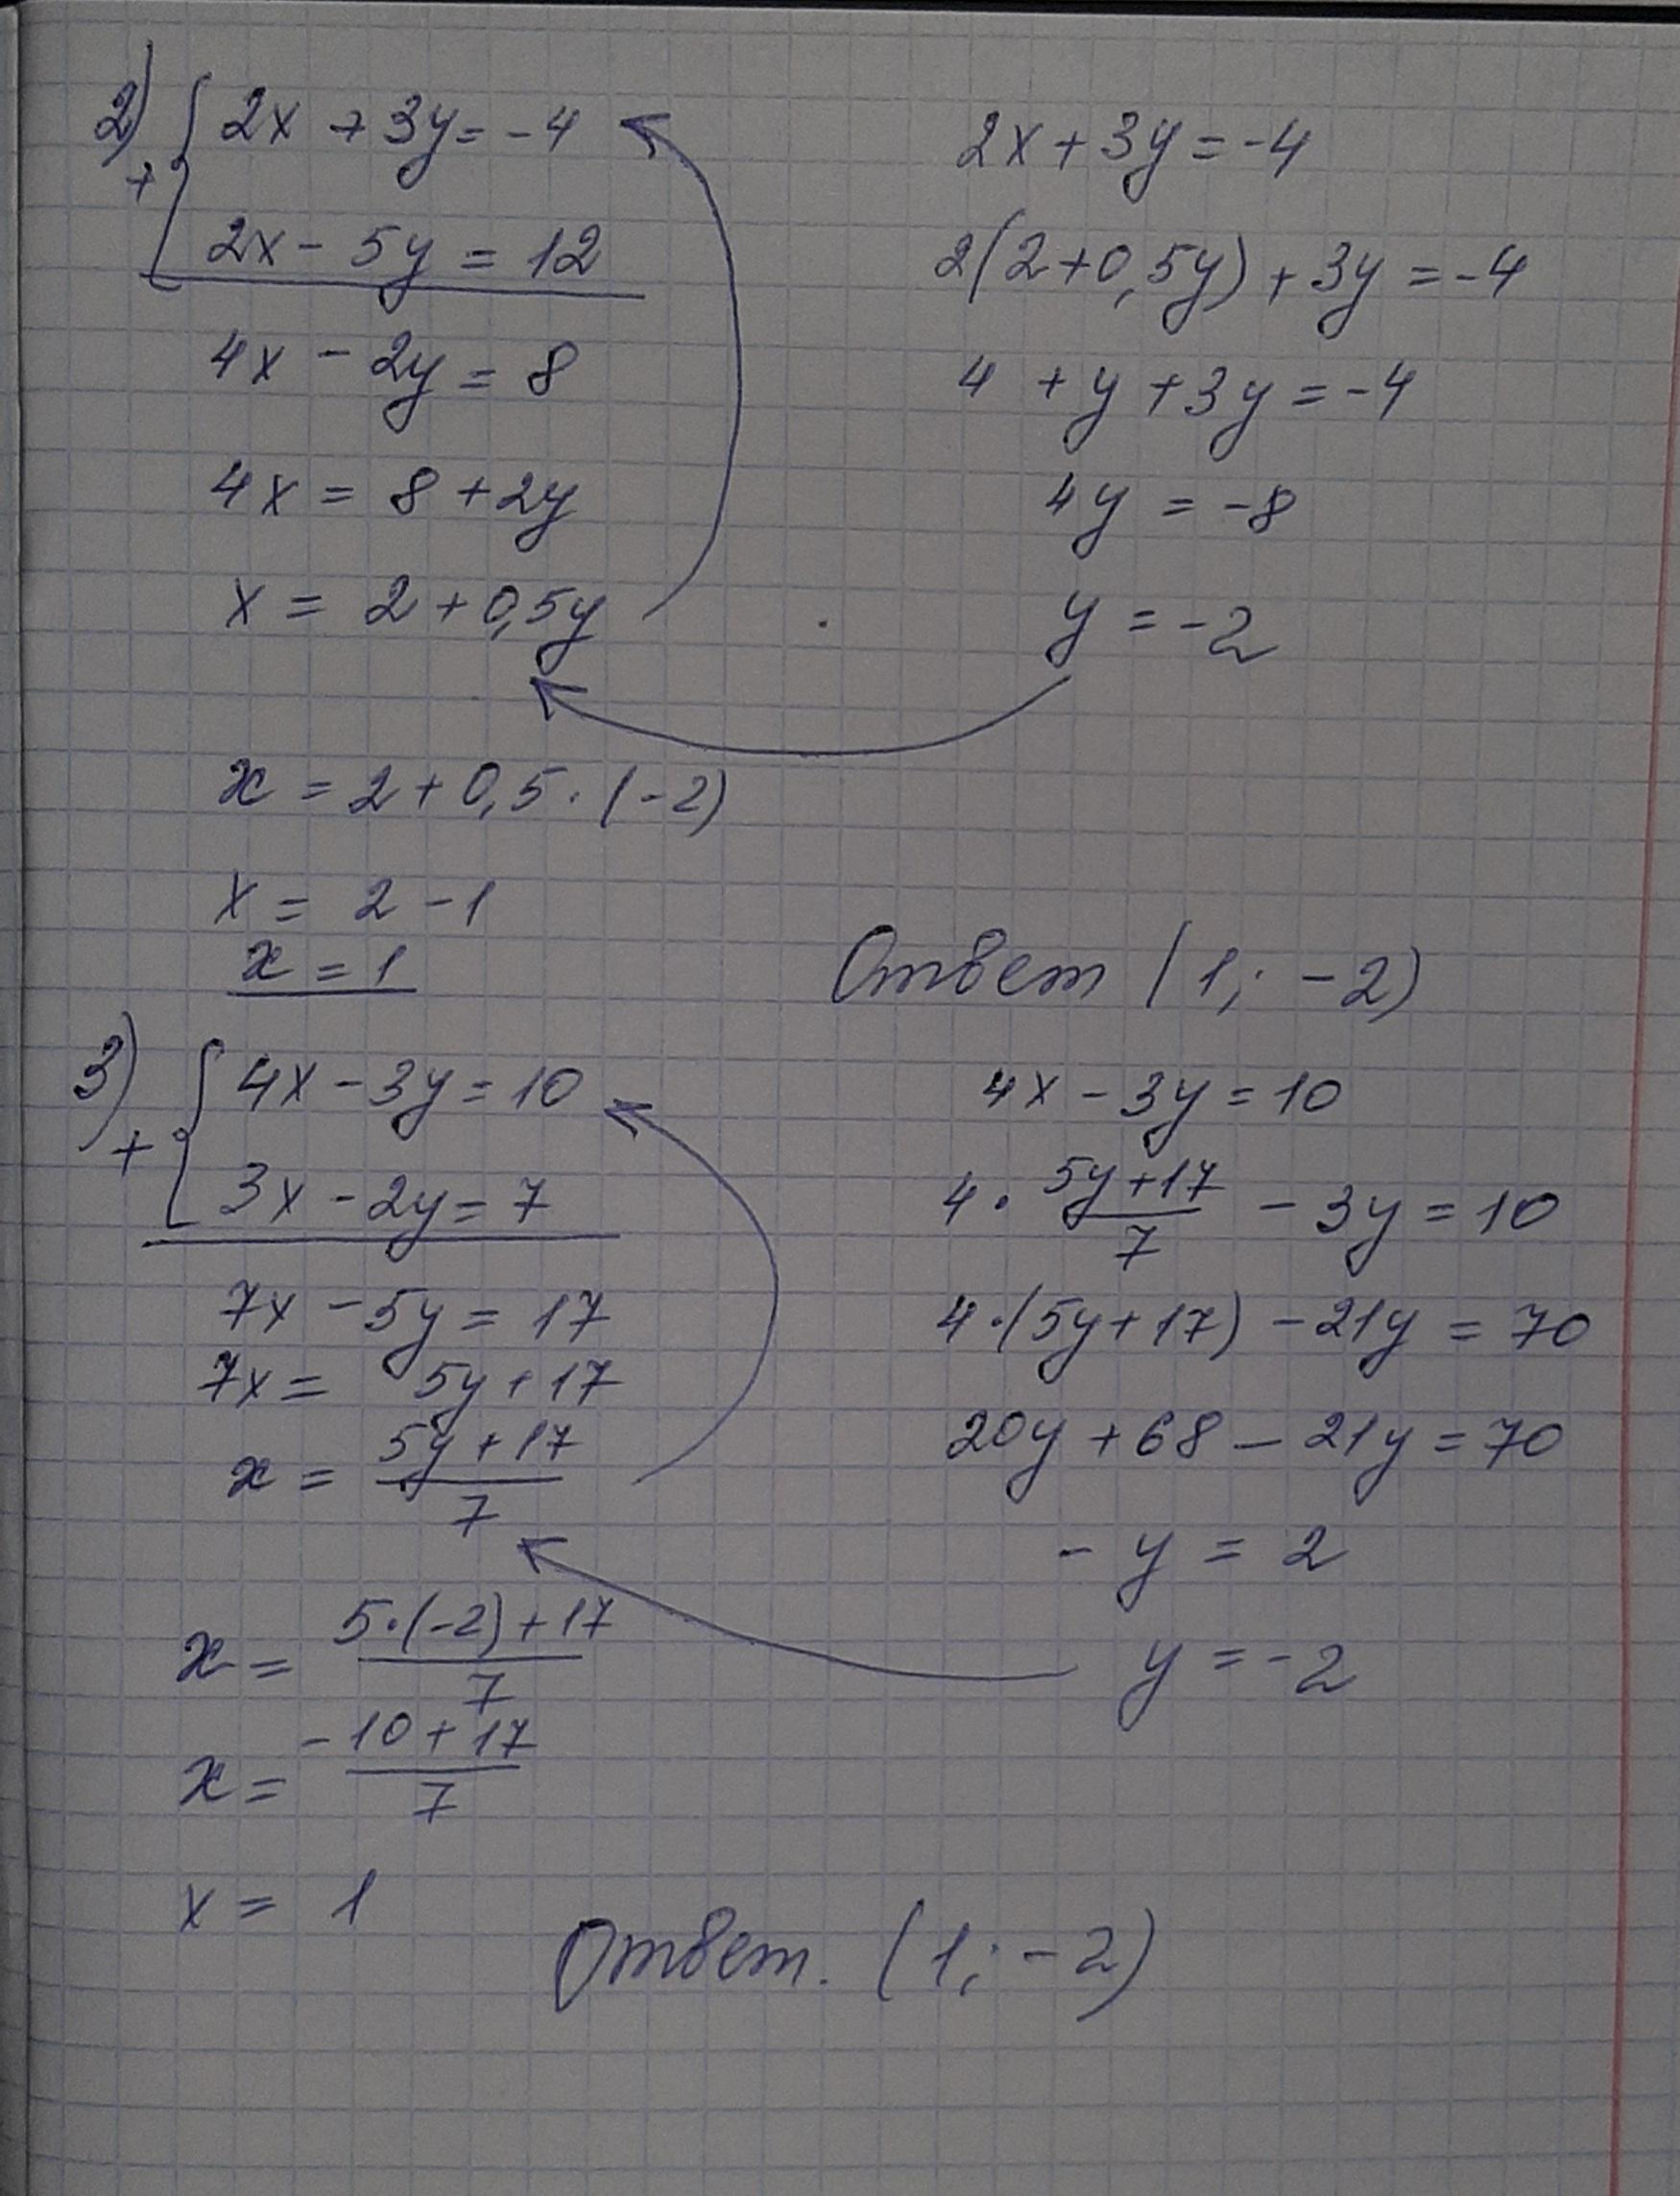 2) 2x + 3y = -4
+
2x - 5y = 12
4x - 2y = 8
4x = 8 + 2y
x = 2 + 0,5y
2x + 3y = -4
2(2 + 0,5y) + 3y = -4
4 + y + 3y = -4
4y = -8
y = -2
x = 2 + 0,5 · (-2)
x = 2 - 1
x = 1
Ответ (1; -2)
3) 4x - 3y = 10
+
3x - 2y = 7
7x - 5y = 17
7x = 5y + 17
x = (5y + 17)/7
4x - 3y = 10
4 · (5y + 17)/7 - 3y = 10
4 · (5y + 17) - 21y = 70
20y + 68 - 21y = 70
- y = 2
y = -2
x = (5 · (-2) + 17)/7
x = (-10 + 17)/7
x = 1
Ответ. (1; -2)